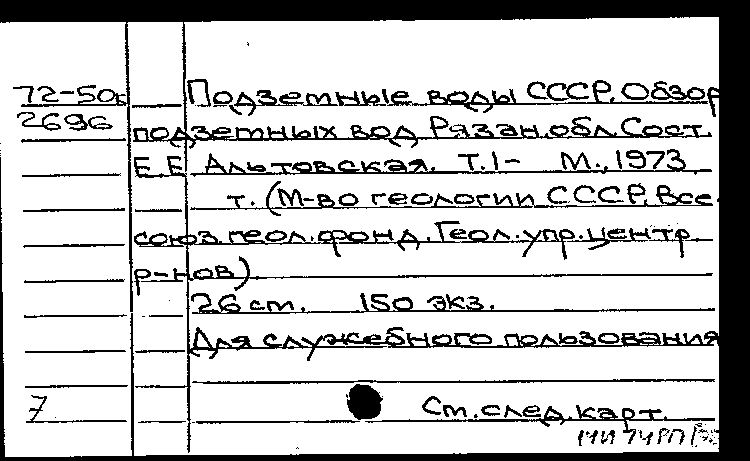 72-50с Подземные воды СССР. Обзор
2696 подземных вод Рязан.обл. Сост.
Е.Е Альтовская. Т.1- М., 1973
т. (М-во геологии СССР. Все-
союз.геол.фонд. Геол.упр.центр.
р-нов).
26 ст. 150 экз.
Для служебного пользования
7 См.след.карт.